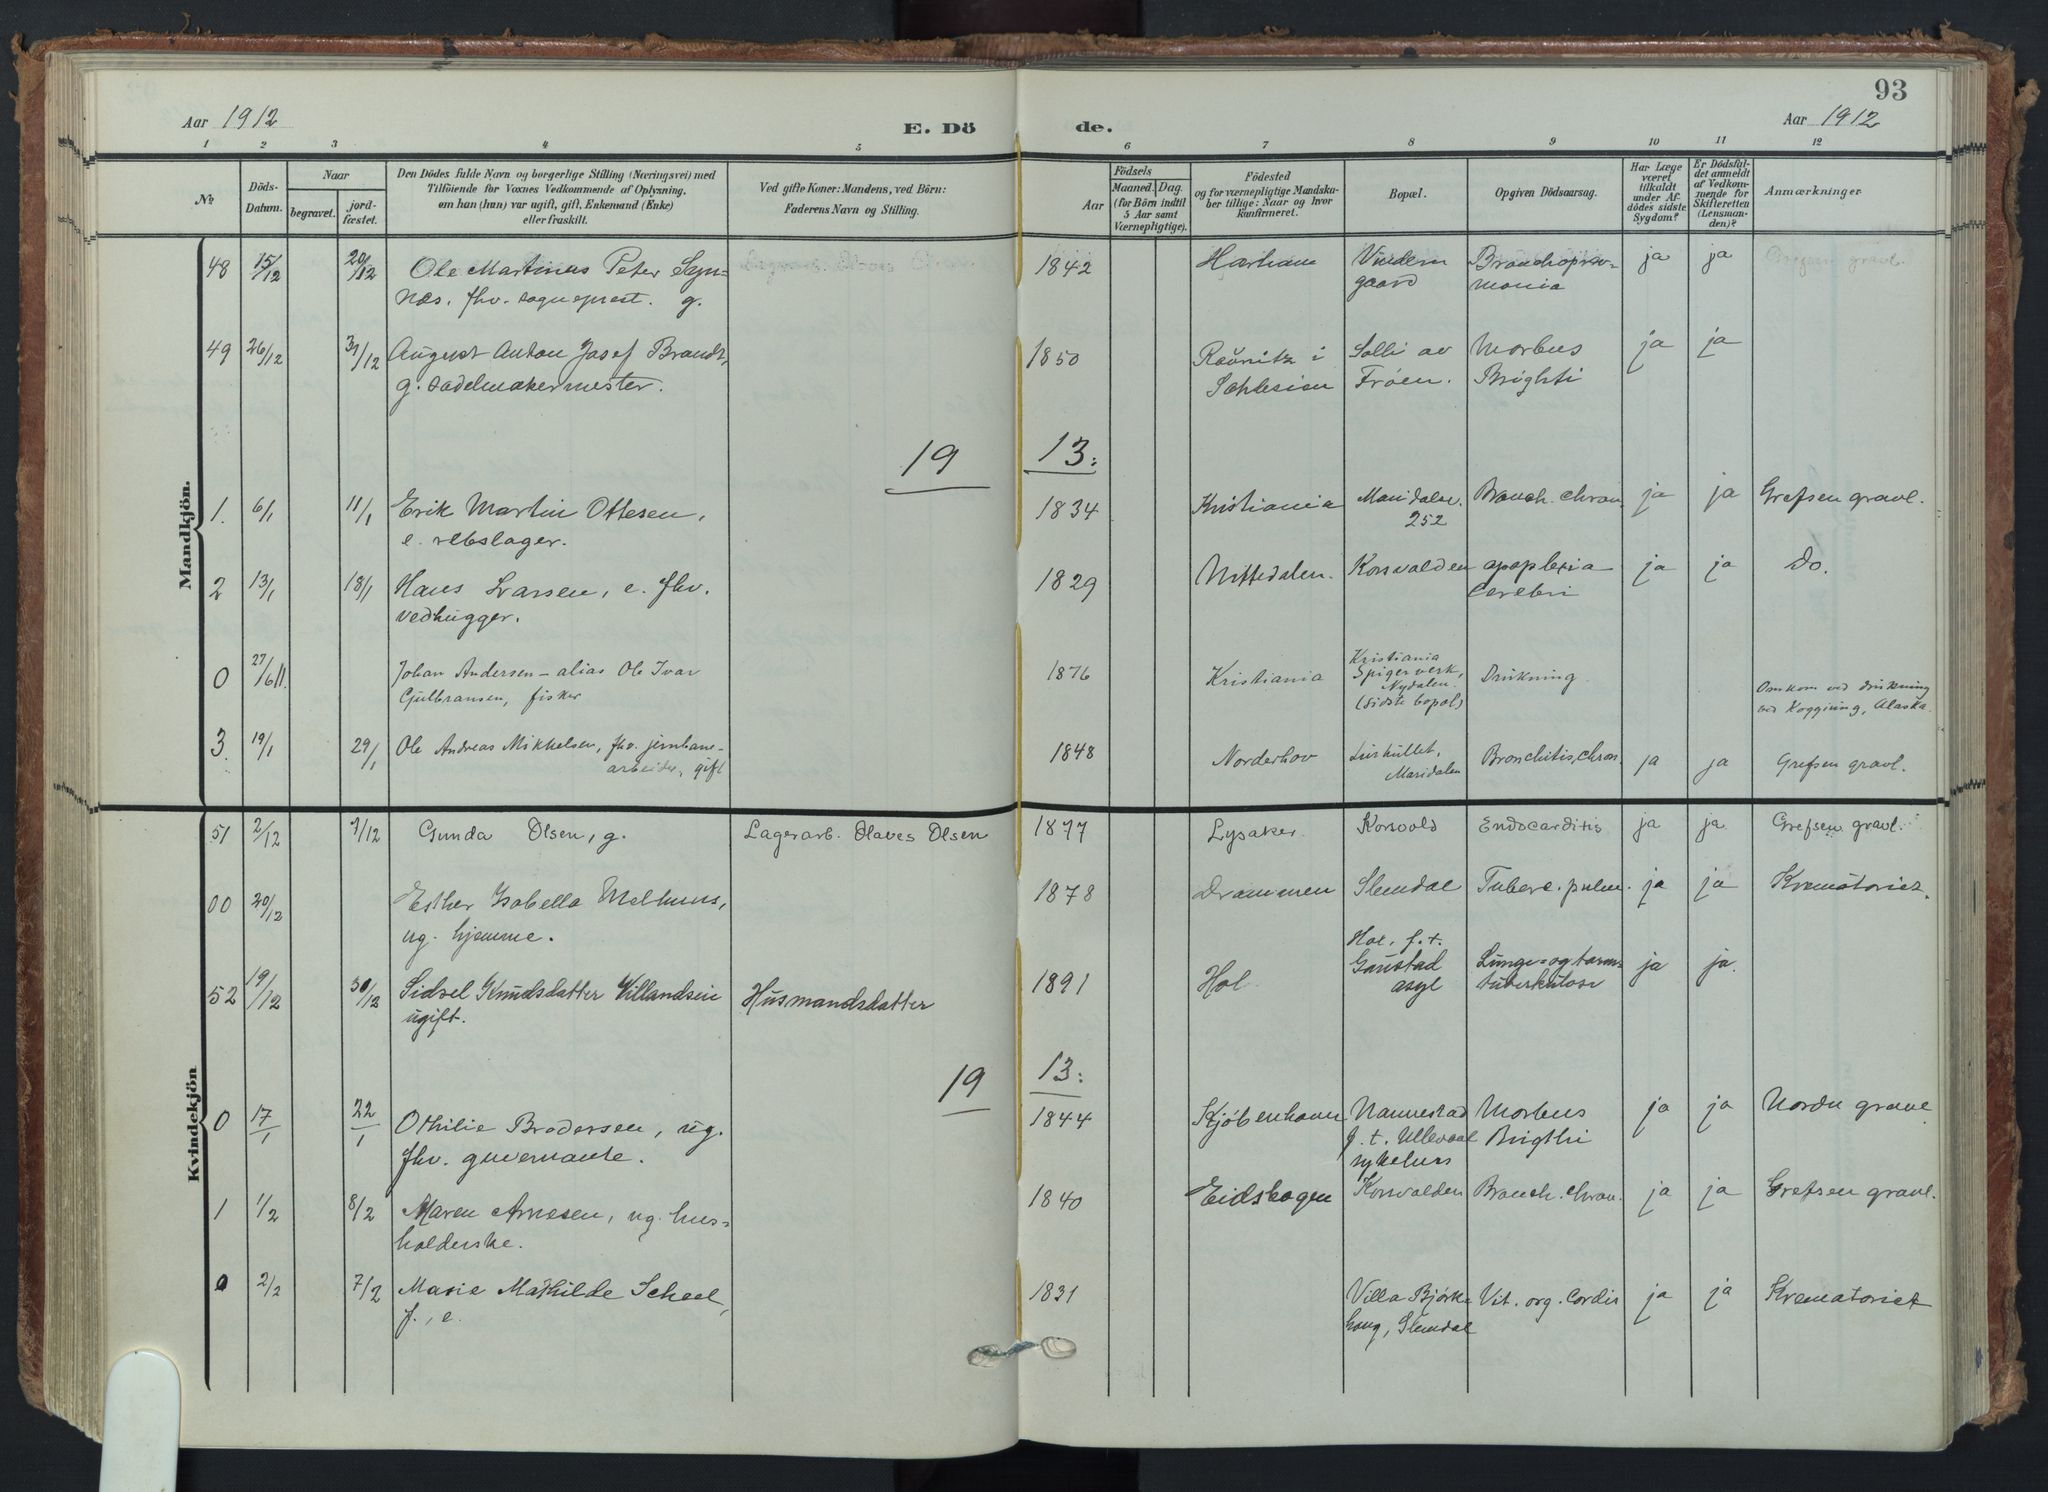 93
Aar 1912
E. Dö
de.
Aar 1912
1 2 3 4 5 6 7 8 9 10 11 12
№
Döds-
Datum.
Naar
begravet.
jord-
fæstet.
Den Dödes fulde Navn og borgerlige Stilling (Næringsvei) med
Tilföiende for Voxnes Vedkommende af Oplysning,
om han (hun) var ugift, gift, Enkemand (Enke)
eller fraskilt.
Ved gifte Koner: Mandens, ved Börn:
Faderens Navn og Stilling.
Födsels
Aar
Maaned. Dag.
(for Börn indtil
5 Aar samt
Værnepligtige).
Födested
og for værnepligtige Mandska-
ber tillige: Naar og hvor
konfirmeret.
Bopæl.
Opgiven Dödsaarsag.
Har Læge
været
tilkaldt
under Af-
dödes sidste
Sygdom?
Er Dödsfal-
det anmeldt
af Vedkom-
mende for
Skifteretten
(Lensman-
den)?
Anmærkninger
Mandkjön.
48 15/12 20/12 Ole Martinus Peter 1842 Vindern ja ja
fhv. sogneprest. g. gaard
49 26/12 31/12 August Anton Josef Brandt, 1850 i Solli av Morbus ja ja
g. sadelmakermester. Schlesien Frøen. Brighti
19 13:
1. 6/1 11/1 Erik Martin Ottesen, 1834 Kristiania Maridalsv. Bronch. chron. ja ja Grefsen gravl.
e. rebslager. 252
2 13/1 18/1 Hans Larsen, e. fhv. 1829 Nittedalen. Korsvolden apoplexia ja ja Do.
vedhugger. cerebri
0 27/6 11. Johan Andersen – alias Ole Ivar 1876 Kristiania Kristiania Drukning
Gulbransen, fisker Spigerverk,
Nydalen.
(sidste bopæl)
Omkom ved drukning
ved Koggiung, Alaska.
3. 19/1 29/1 Ole Andreas Mikkelsen, fhv. jernbane- 1848 Norderhov Bronchitis, chron. ja ja Grefsen gravl.
arbeider, gift Maridalen
Kvindekjön
51 2/12 7/12 Gunda Olsen, g. Lagerarb. Olaves Olsen 1877 Lysaker. Korsvold Endocarditis ja ja. Grefsen gravl.
00 20/12 Esther Isabella Melhuus, 1878 Drammen Slemdal Tuberc. pulm. ja ja Krematoriet.
ug. hjemme.
52 19/12 30/12 Sidsel Knudsdatter Villandseie Husmandsdatter 1891 Hol Hol, f.t. Lunge- og tarm- ja ja.
ugift. Gaustad tuberkulose
asyl
19 13:
0 17/1 22/1 Othilie Brodersen, ug. 1844 Kjøbenhavn Nannestad Morbus ja ja Nordre gravl.
fhv. guvernante. f.t. Ullevaal Brigthi
sykehus
1 1/2 8/2 Maren Arnesen, ug. hus- 1840 Eidskogen Korsvolden Bronch. chron. ja ja Grefsen gravl.
holderske.
0 2/2 7/2 Marie Mathilde Scheel, 1831 Villa Bjørk- Vit. org. cordis ja ja Krematoriet
f., e. haug, Slemdal